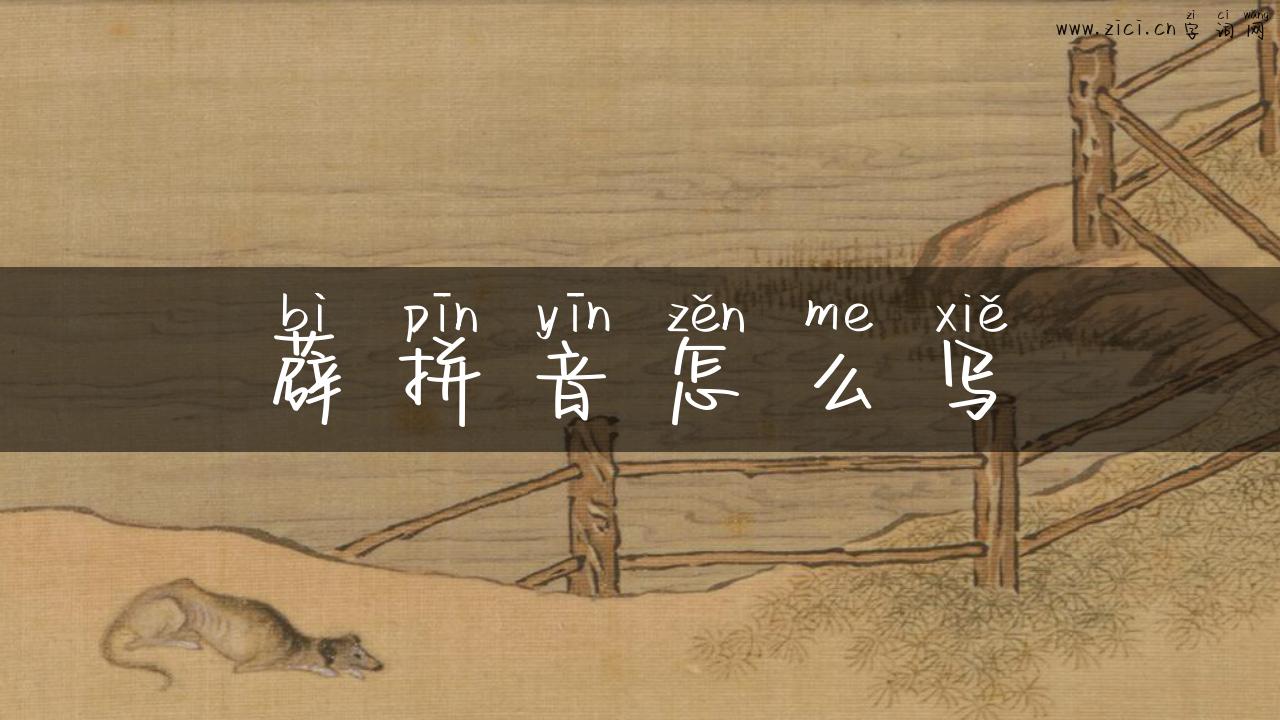 zì cí wǎng
www.zici.cn 字词网
bì pīn yīn zěn me xiě
薜拼音怎么写